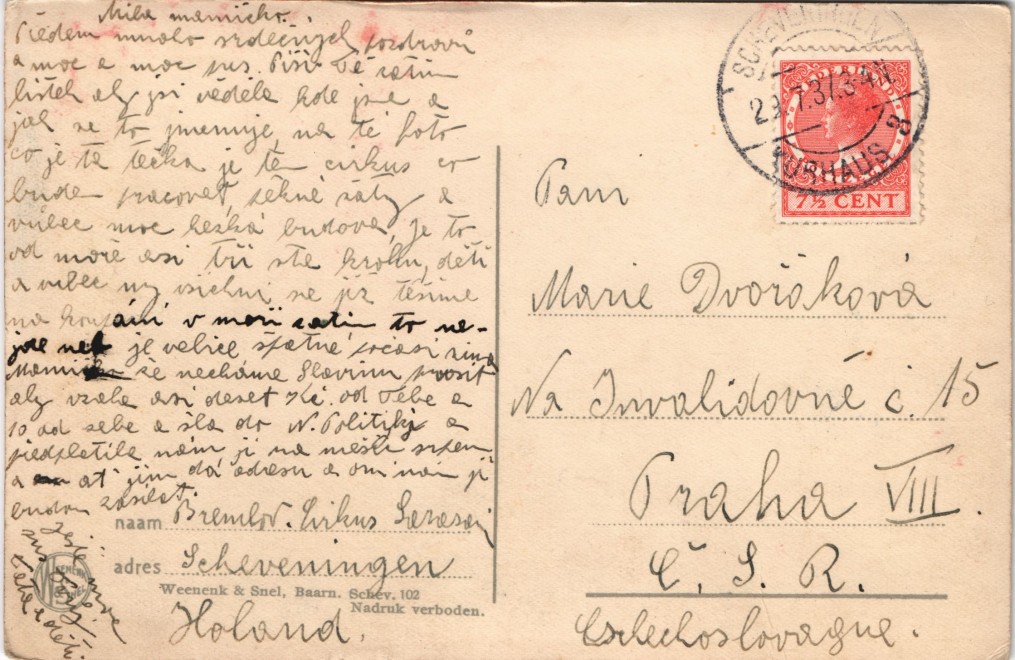 Milá mamičko.
Předem mnoho srdečných pozdravů
a moc a moc pus. Píši Ti zatím
lístek aby jsi věděla kde jsme a
jak se to jmenuje, na té foto
co je ta tečka je ten cirkus co
budem pracovat, pěkné šaty a
vůbec moc hezká budova, je to
od moře asi tři sta kroků, děti
a vůbec my všichni se již těšíme
na koupání v moři zatím to ne-
jde neb je velice špatné počasí zima
Mamičko že necháme Slávinu prosit
aby vzala asi deset Kč. od Tebe a
10 od sebe a šla do N. Politiky a
předplatila nám ji na měsíc srpen
a ať jim dá adresu a oni nám ji
budou zasílat.
Ještě moc
pus
Táta i děti.
naam Bremlov. Cirkus Sarasani
adres Scheveningen
Holand.
Weenenk & Snel, Baarn. Schev. 102
Nadruk verboden.
WEENENK SNEL
SCHEVENINGEN
29.7.37.3-4N
KURHAUS
8
NEDERLAND
7½ CENT
Paní
Marie Dvořáková
Na Invalidovně č. 15
Praha VIII.
Č. S. R.
Czlechoslovaque.